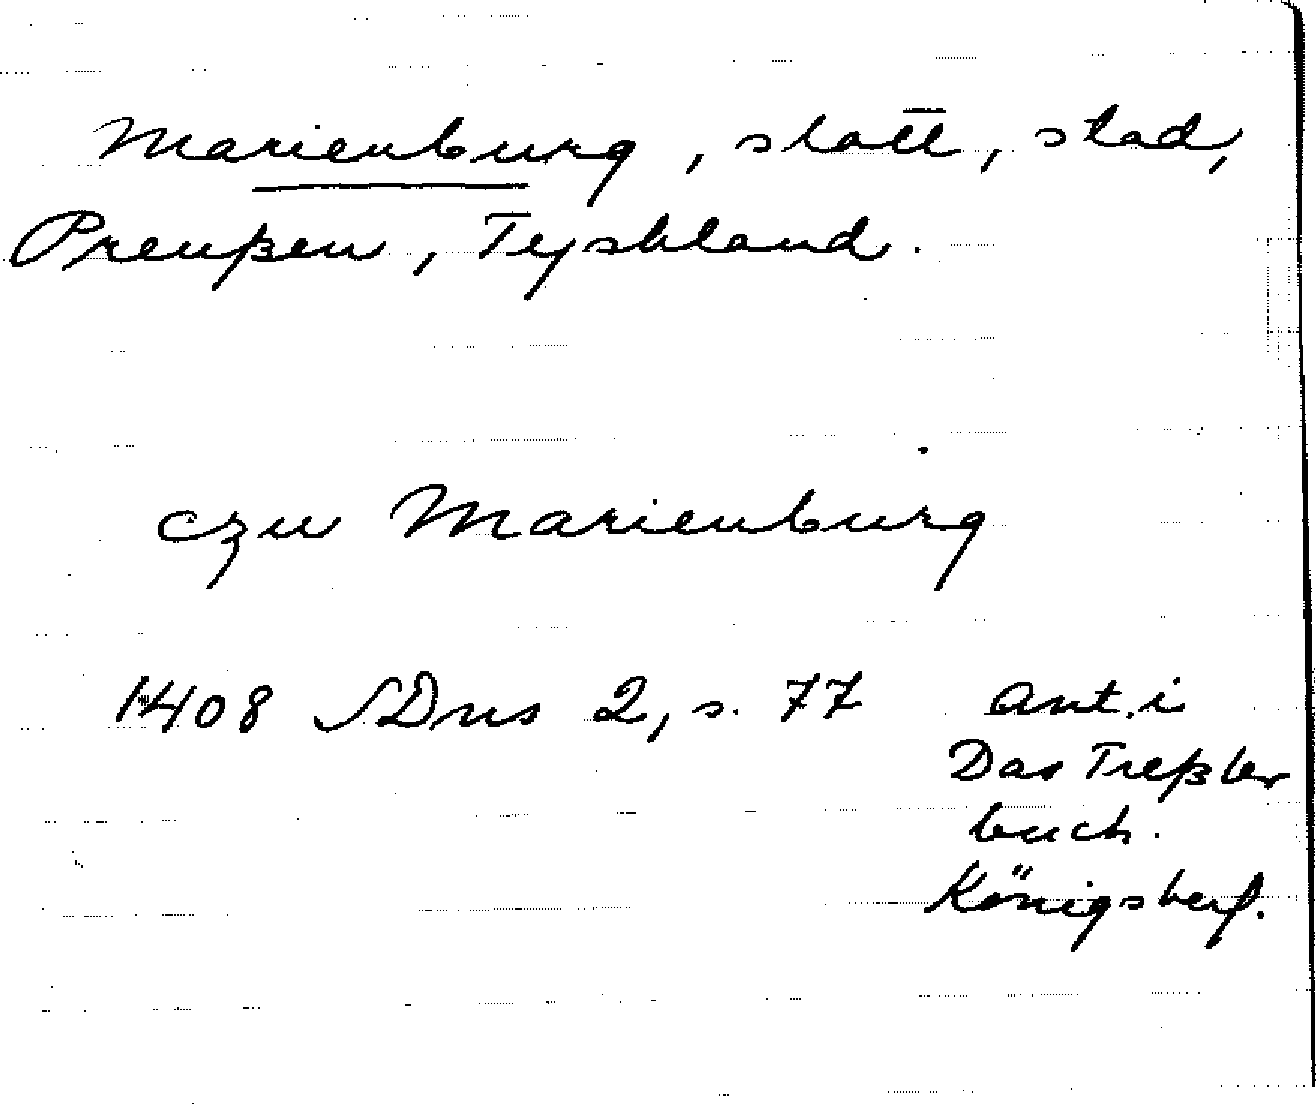 Marienburg, slott, stad,
Preußen, Tyskland.
czu Marienburg
1408 SDns 2, s. 77 ant. i
Das Treßler
buch.
Königsberg.